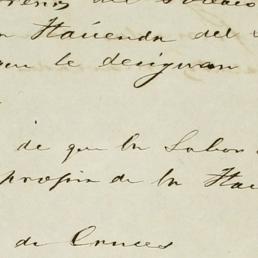 del
Hacienda del
que le designan
de que la Labor
propia de la Hac
de Cruces